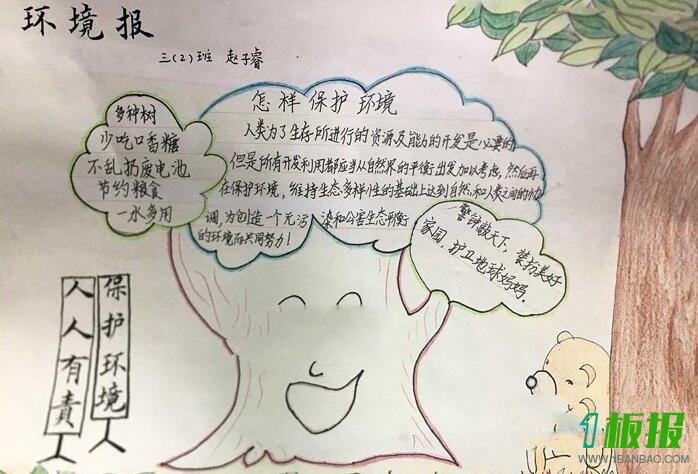 环境报
三(2)班 赵子睿
多种树
少吃口香糖
不乱扔废电池
节约粮食
一水多用
怎样保护环境
人类为了生存所进行的资源及能的开发是必要的
但是所有开发利用都应当从自然界的平衡出发加以考虑,然后再
在保护环境,维持生态多样性的基础上达到自然和人类之间的协
调,为创造一个无污染和公害生态平衡
的环境而共同努力!
警钟敲天下,装扮美好
家园,护卫地球妈妈。
保护环境
人人有责
1板报
WWW.1BANBAO.COM